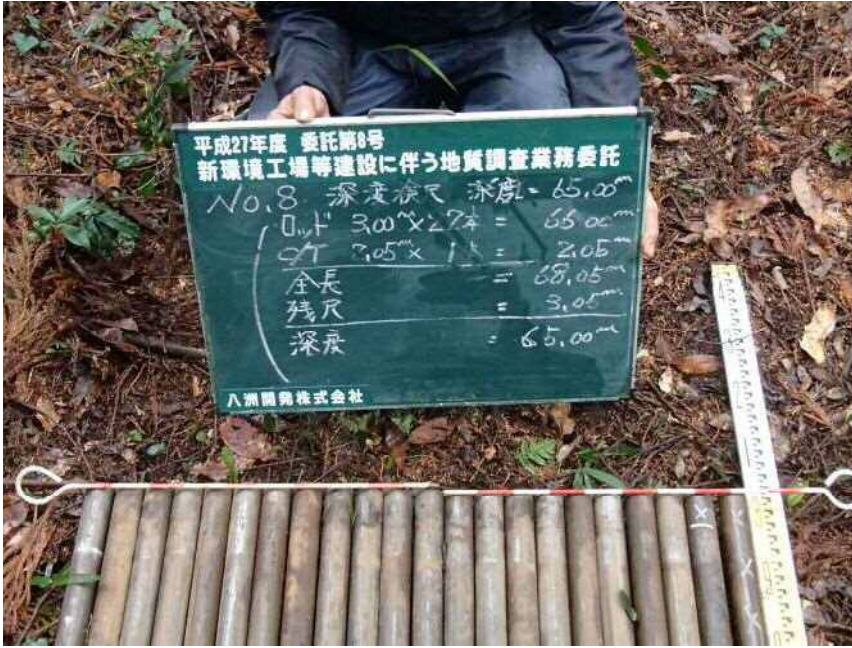 平成27年度 委託第8号
新環境工場等建設に伴う地質調査業務委託
No.8 深度検尺 深度= 65.00m
ロッド 3.00m× = 66.00m
C/T 2.05m×1本= 2.05m
全長 = 68.05m
残尺 = 3.05m
深度 = 65.00m
八洲開発株式会社